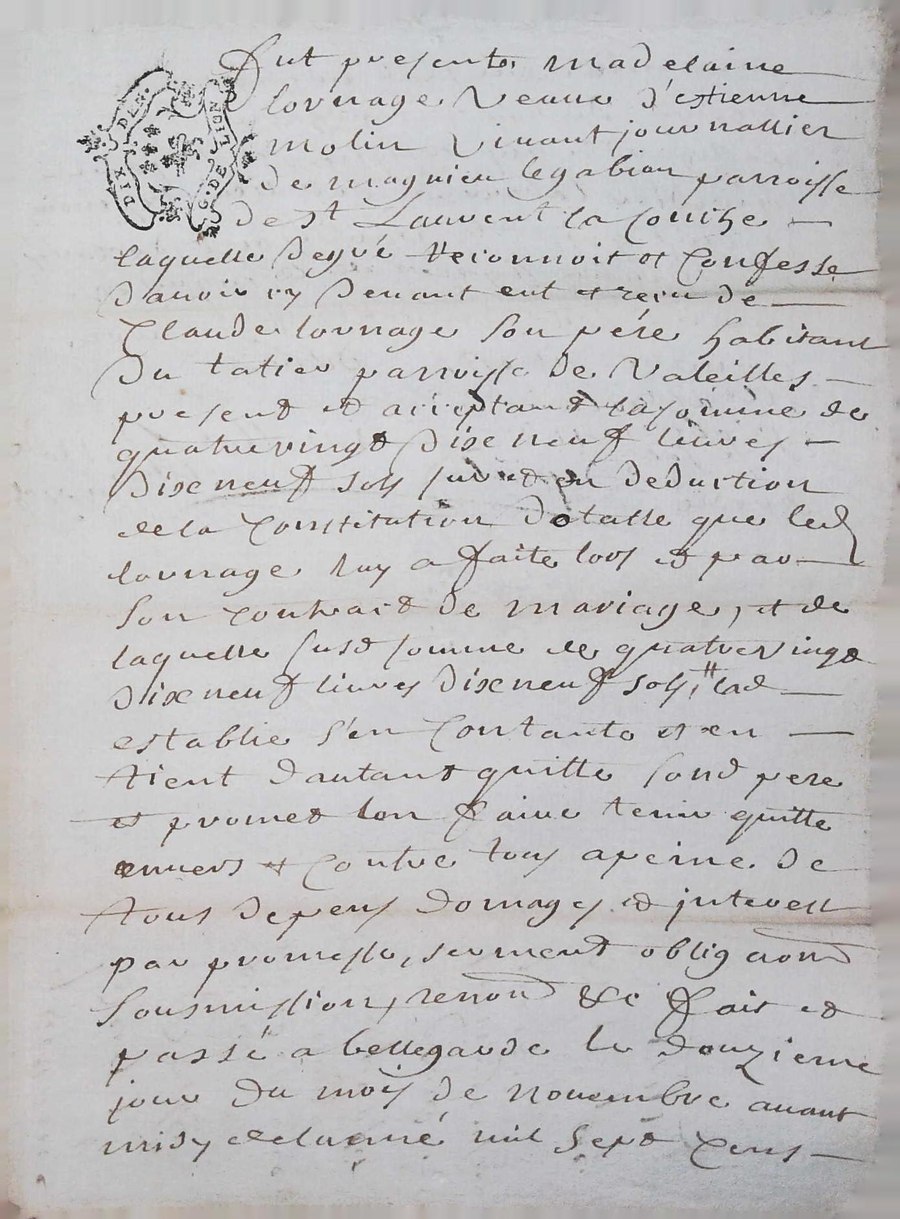 DIX DEN.
G. DE LION
fut presente madelaine
lournage veauve d'estienne
molin vivant journallier
de magnieu le gabion parroisse
de st Laurent la Conche
laquelle de gré reconnoit et Confesse
d'avoir cy devant eut et reçu de
Claude lournage son pére habitant
du parroisse de Valeilles
present et acceptant la somme de
quatrevingt dixneuf livres
dixneuf sols sur et en deduction
de la Constitution dotalle que led
lournage luy a faite lors et par
son contract de mariage, et de
laquelle susd somme de quatrevingt
dixneuf livres dixneuf sols, lad
establie s'en Contante et en
tient d'autant quitte sond pere
et promet l'en faire tenir quitte
envers et Contre tous a peine de
tous depens domages et interest
par promesse, serment obligaond
Sousmission, renond &c fait et
passé a bellegarde le douzieme
jour du mois de novembre avant
midy de l'anné mil sept Cens